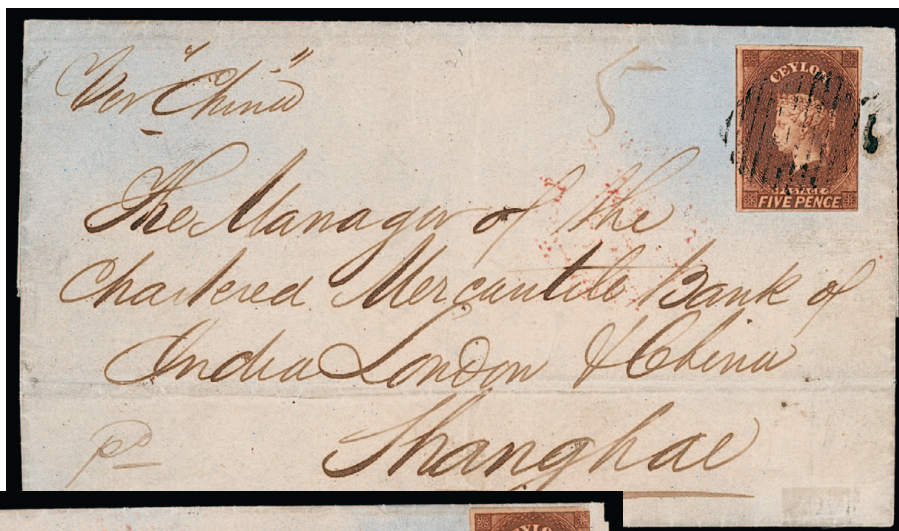 Per "China"
5
CEYLON
POSTAGE
FIVE PENCE
The Manager of the
Chartered Mercantile Bank of
India London & China
pd
Shanghae
CEYLO